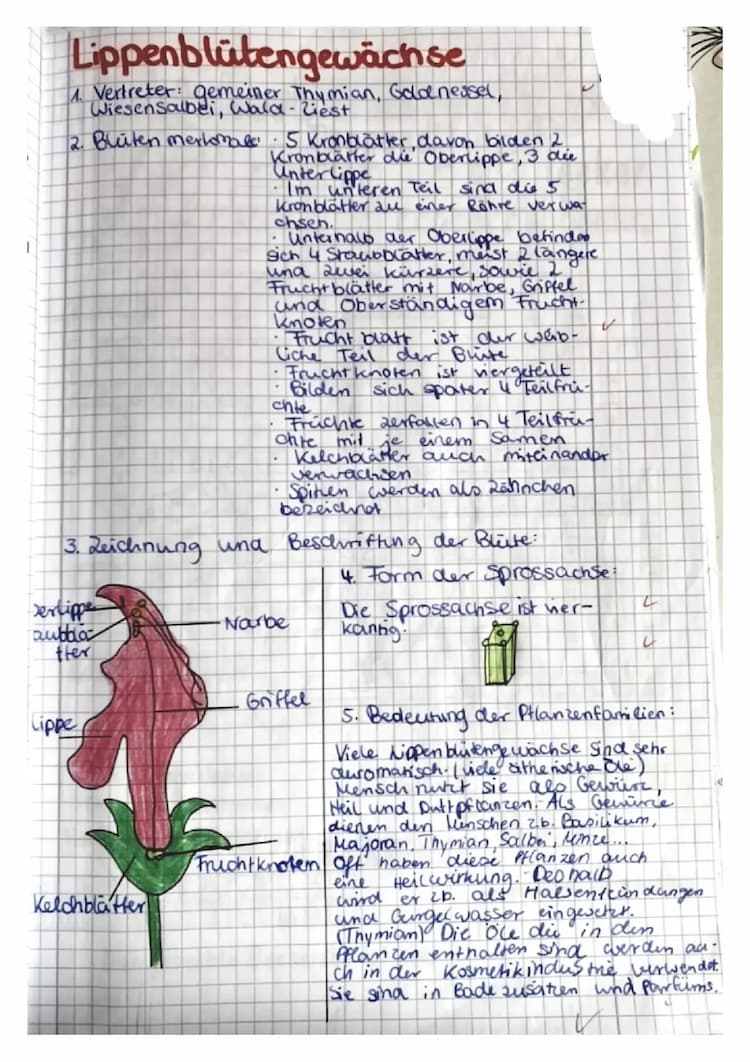 Lippenblütengewächse
1. Vertreter: gemeiner Thymian, Goldnessel,
Wiesensalbei, Wald-Ziest
2. Blütenmerkmale: · 5 Kronblätter, davon bilden 2
Kronblätter die Oberlippe, 3 die
Unterlippe
· Im unteren Teil sind die 5
Kronblätter zu einer Röhre verwa-
chsen.
· Unterhalb der Oberlippe befinden
sich 4 Staubblätter, meist 2 längere
und zwei kürzere, sowie 2
Fruchtblätter mit Narbe, Griffel
und Oberständigem Frucht-
knoten
· Fruchtblatt ist der weib-
liche Teil der Blüte
· Fruchtknoten ist viergeteilt
· Bilden sich später 4 Teilfrü-
chte
· Früchte zerfallen in 4 Teilfrü-
chte mit je einem Samen
· Kelchblätter auch miteinander
verwachsen
· Spitzen werden als Zähnchen
bezeichnet
3. Zeichnung und Beschriftung der Blüte:
erlippe
aubblä-
tter
Narbe
Griffel
lippe
Fruchtknoten
Kelchblätter
4. Form der Sprossachse:
Die Sprossachse ist vier-
kantig.
5. Bedeutung der Pflanzenfamilien:
Viele Lippenblütengewächse sind sehr
auromatisch. (viele ätherische Öle)
Mensch nutzt sie als Gewürz,
Heil und Duftpflanzen. Als Gewürze
dienen den Menschen z.b. Basilikum,
Majoran, Thymian, Salbei, Minze...
Oft haben diese Pflanzen auch
eine Heilwirkung. Deshalb
wird er z.b. als Halsentzündungen
und Gurgelwasser eingesetzt.
(Thymian) Die Öle die in den
Pflanzen enthalten sind werden au-
ch in der Kosmetikindustrie verwendet.
Sie sind in Badezusätzen und Parfüms.